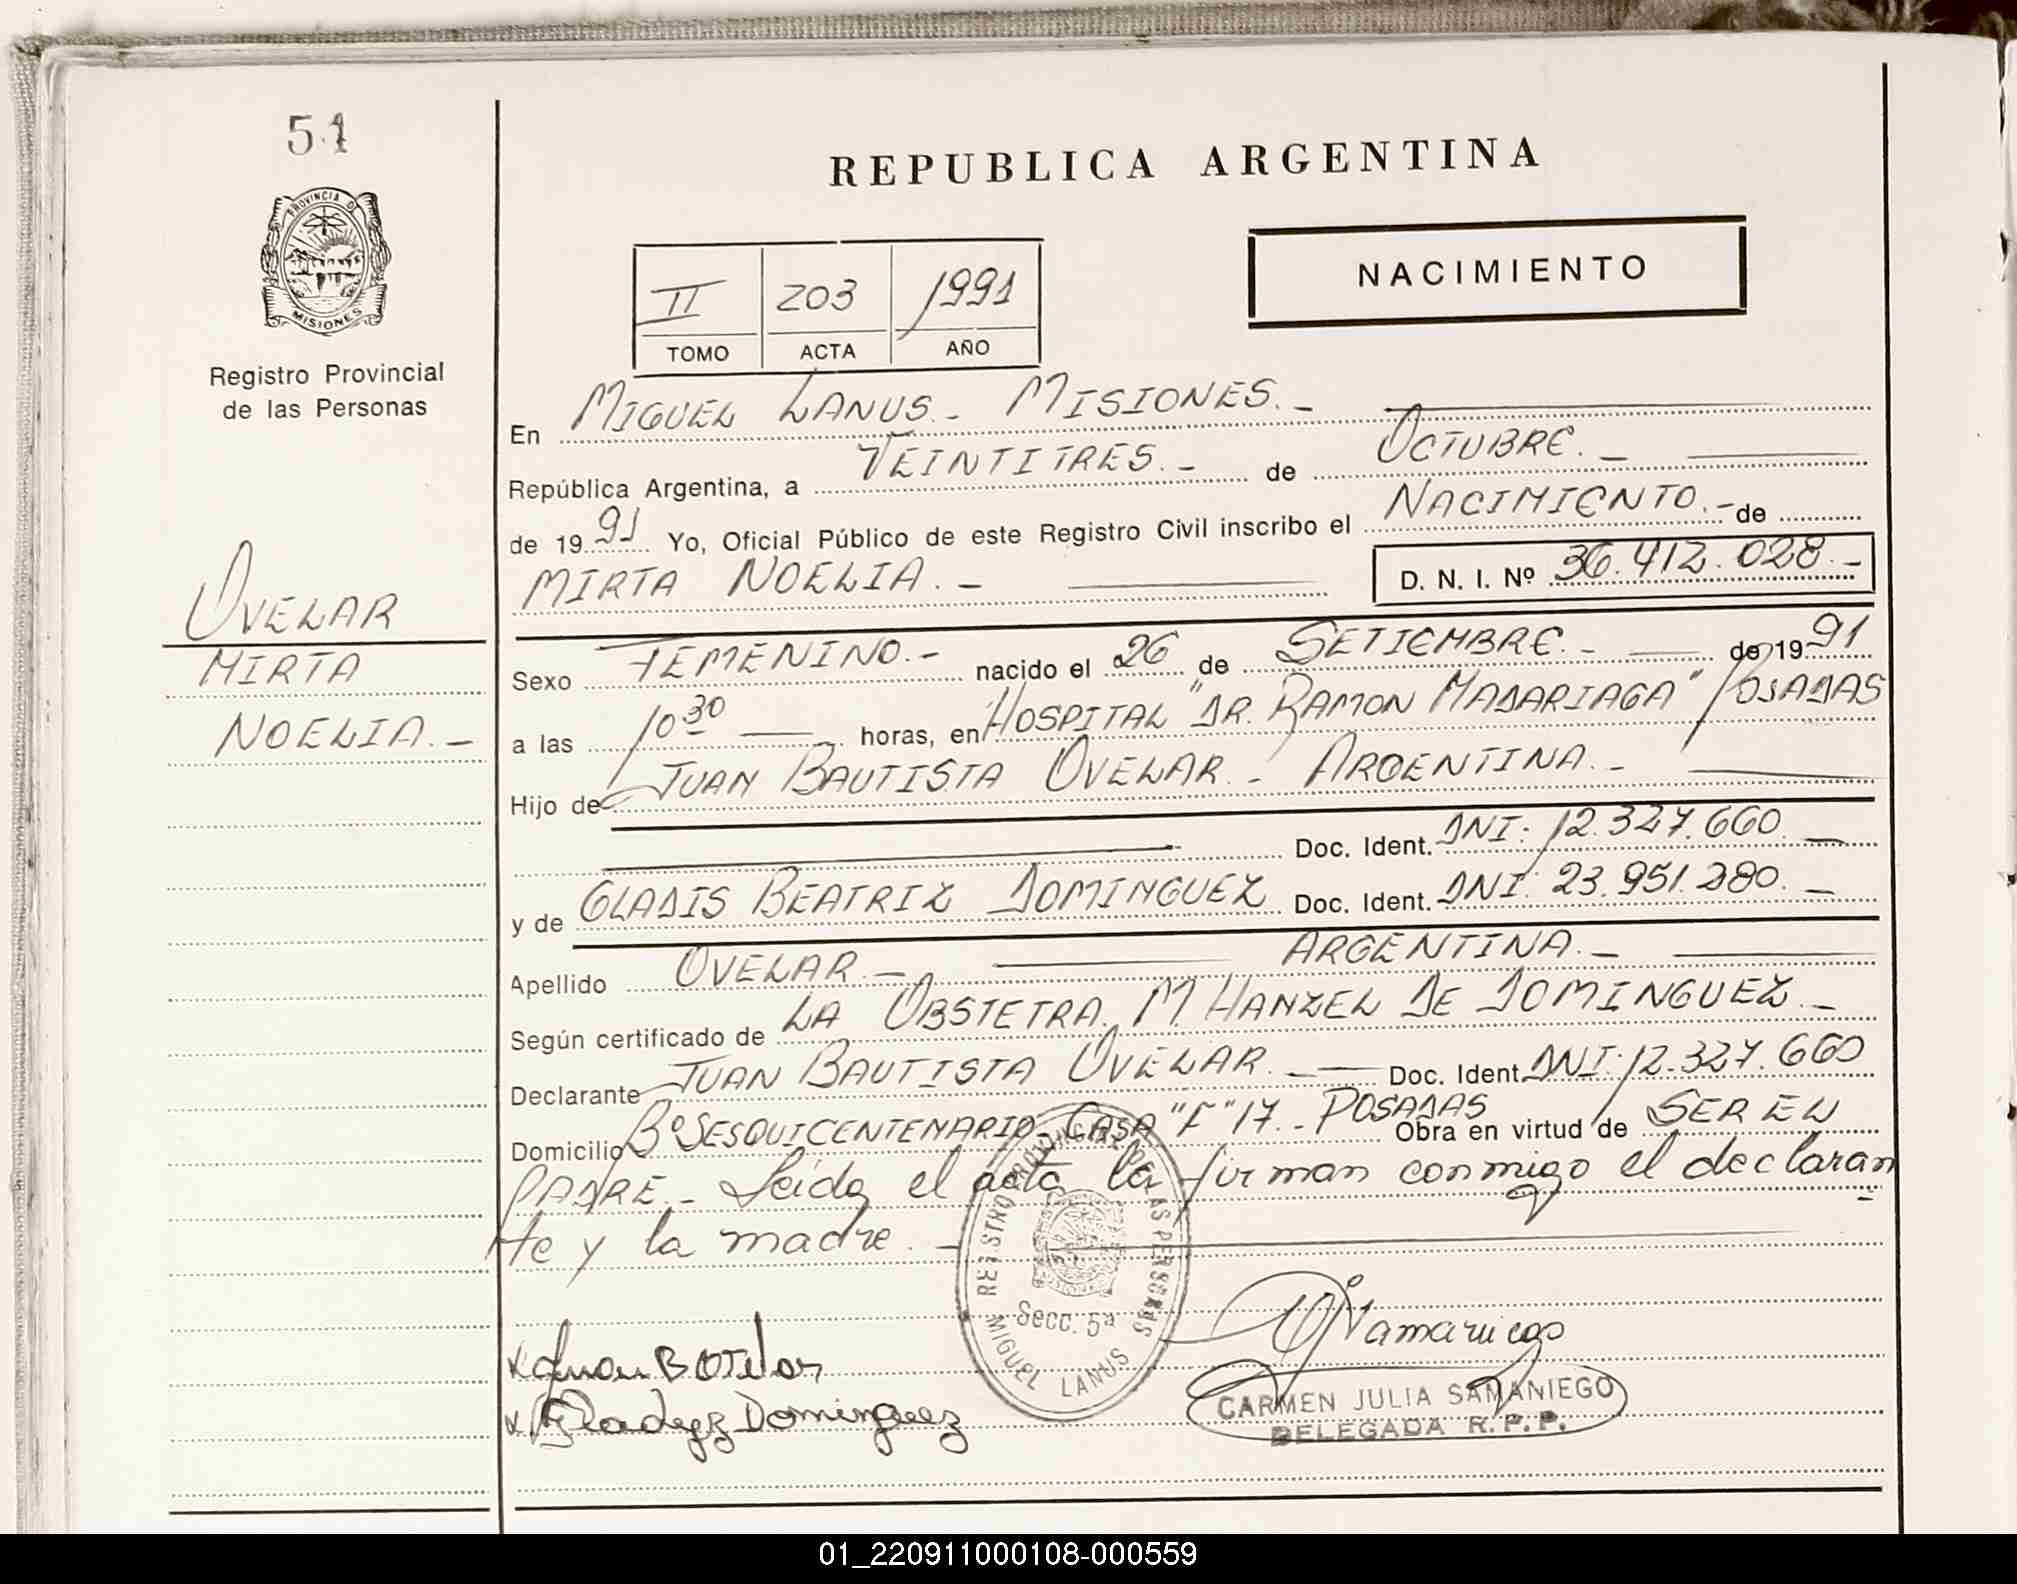 51
PROVINCIA DE
MISIONES
Registro Provincial
de las Personas
OVELAR
MIRTA
NOELIA.-
REPUBLICA ARGENTINA
NACIMIENTO
II 203 1991
TOMO ACTA AÑO
En MIGUEL LANUS.- MISIONES.-
República Argentina, a VEINTITRES.- de OCTUBRE.-
de 1991 Yo, Oficial Público de este Registro Civil inscribo el NACIMIENTO.- de
MIRTA NOELIA.- D. N. I. Nº 36.412.028.-
Sexo FEMENINO.- nacido el 26 de SETIEMBRE.- de 1991
a las 10 30 horas, en HOSPITAL "DR. RAMON MADARIAGA" POSADAS
Hijo de JUAN BAUTISTA OVELAR.- ARGENTINA.-
Doc. Ident. DNI: 12.327.660
y de GLADIS BEATRIZ DOMINGUEZ Doc. Ident. DNI: 23.951.280.-
Apellido OVELAR.- ARGENTINA.-
Según certificado de LA OBSTETRA M. HANZEL DE DOMINGUEZ.-
Declarante JUAN BAUTISTA OVELAR. Doc. Ident. DNI: 12.327.660
Domicilio Bº SESQUICENTENARIO CASA "F" 17.- POSADAS Obra en virtud de SER EL
PADRE.- Leida el acta la firman conmigo el declaran
te y la madre.
REGISTRO PROVINCIAL DE LAS PERSONAS
Secc. 5ª
MIGUEL LANUS
Gladyz Dominguez
CARMEN JULIA SAMANIEGO
DELEGADA R.P.P.
01_220911000108-000559